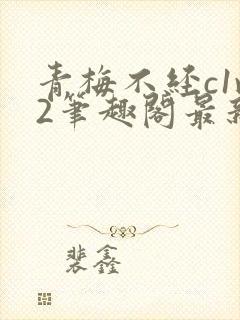 青梅不经c1v
2筆趣阁最新
裴鑫